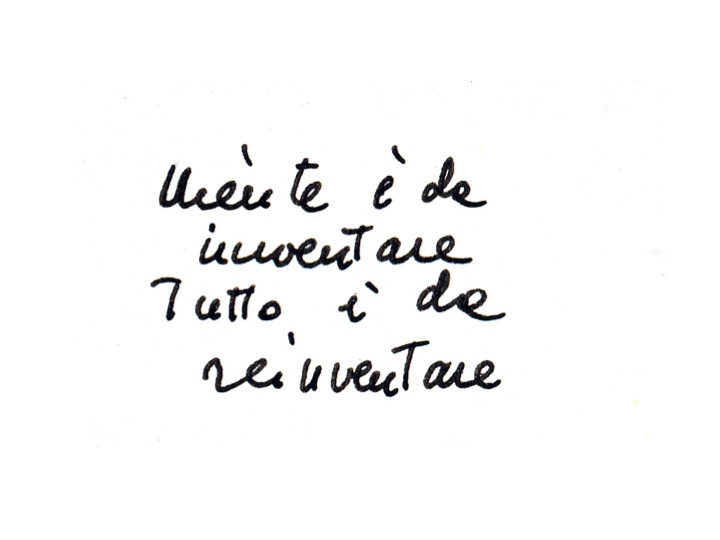 Niente è da
inventare
Tutto è da
reinventare